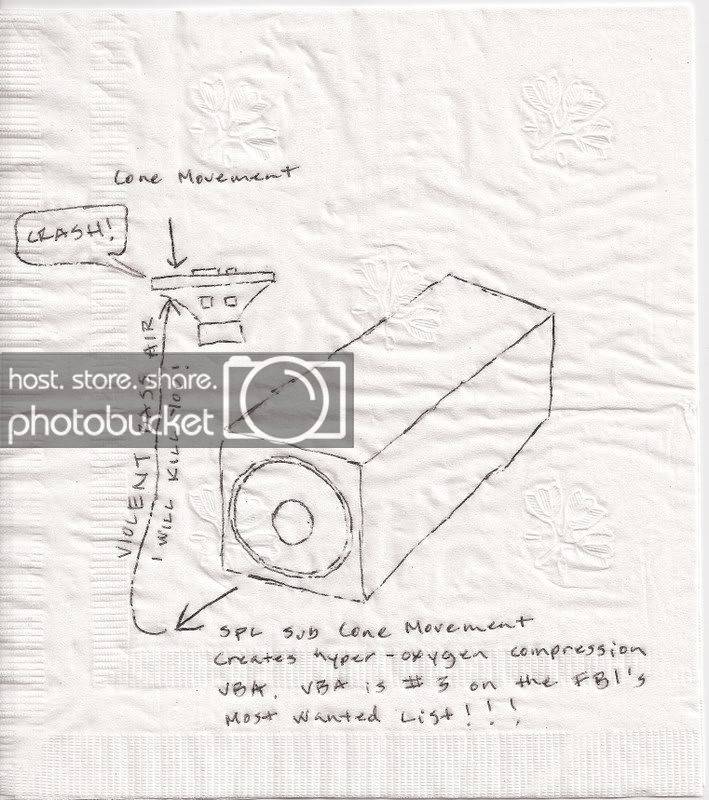 Cone Movement
CRASH!
VIOLENT BASS AIR
I WILL KILL YOU!
host. store. share.
photobucket
SPL Sub Cone Movement
Creates hyper-oxygen compression
VBA. VBA is #3 on the FBI's
Most Wanted List!!!